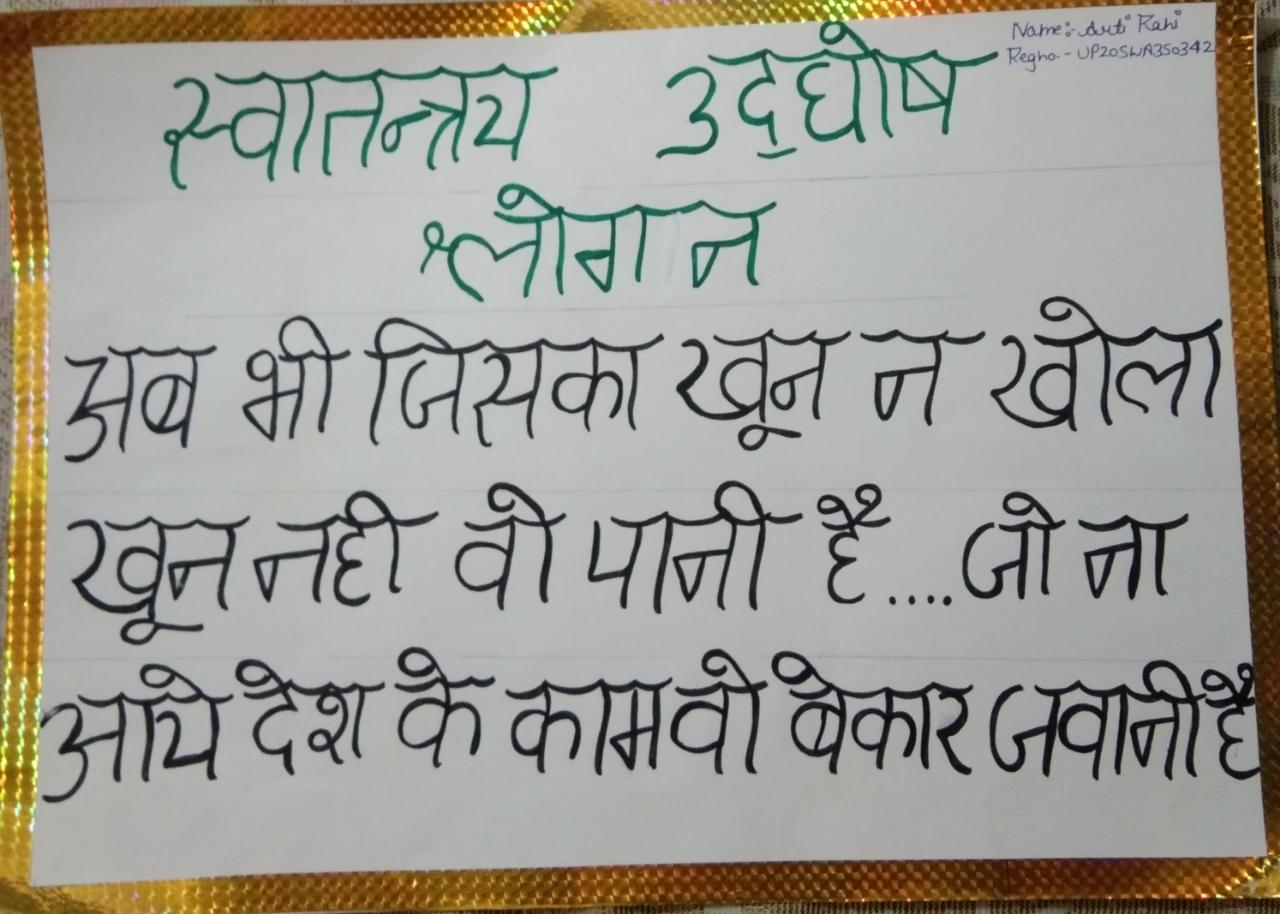 Name:- Arti Rahi
Regno.- UP20SWA350342
स्वातन्त्रय उद्घोष
श्लोगान
अब भी जिसका खून न खोला
खून नही वो पानी है....जो ना
आये देश के काम वो बेकार जवानी है